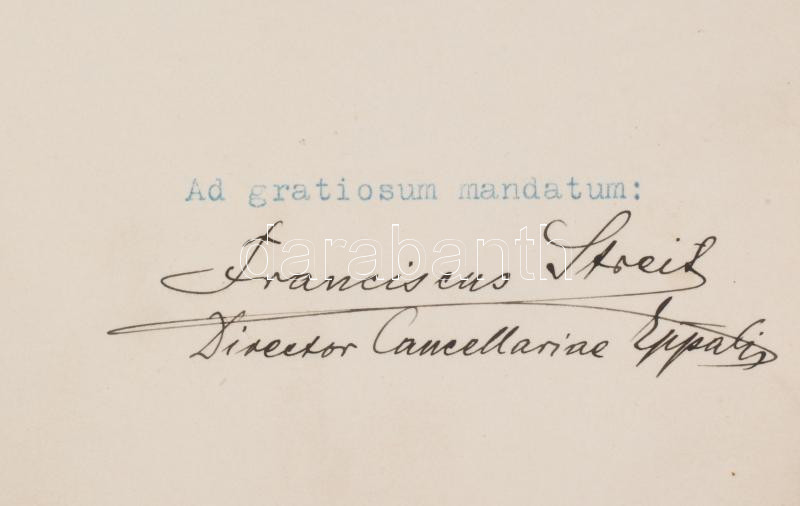 Ad gratiosum mandatum:
darabanth
Franciscus Streit
Director Cancellariae Eppalis